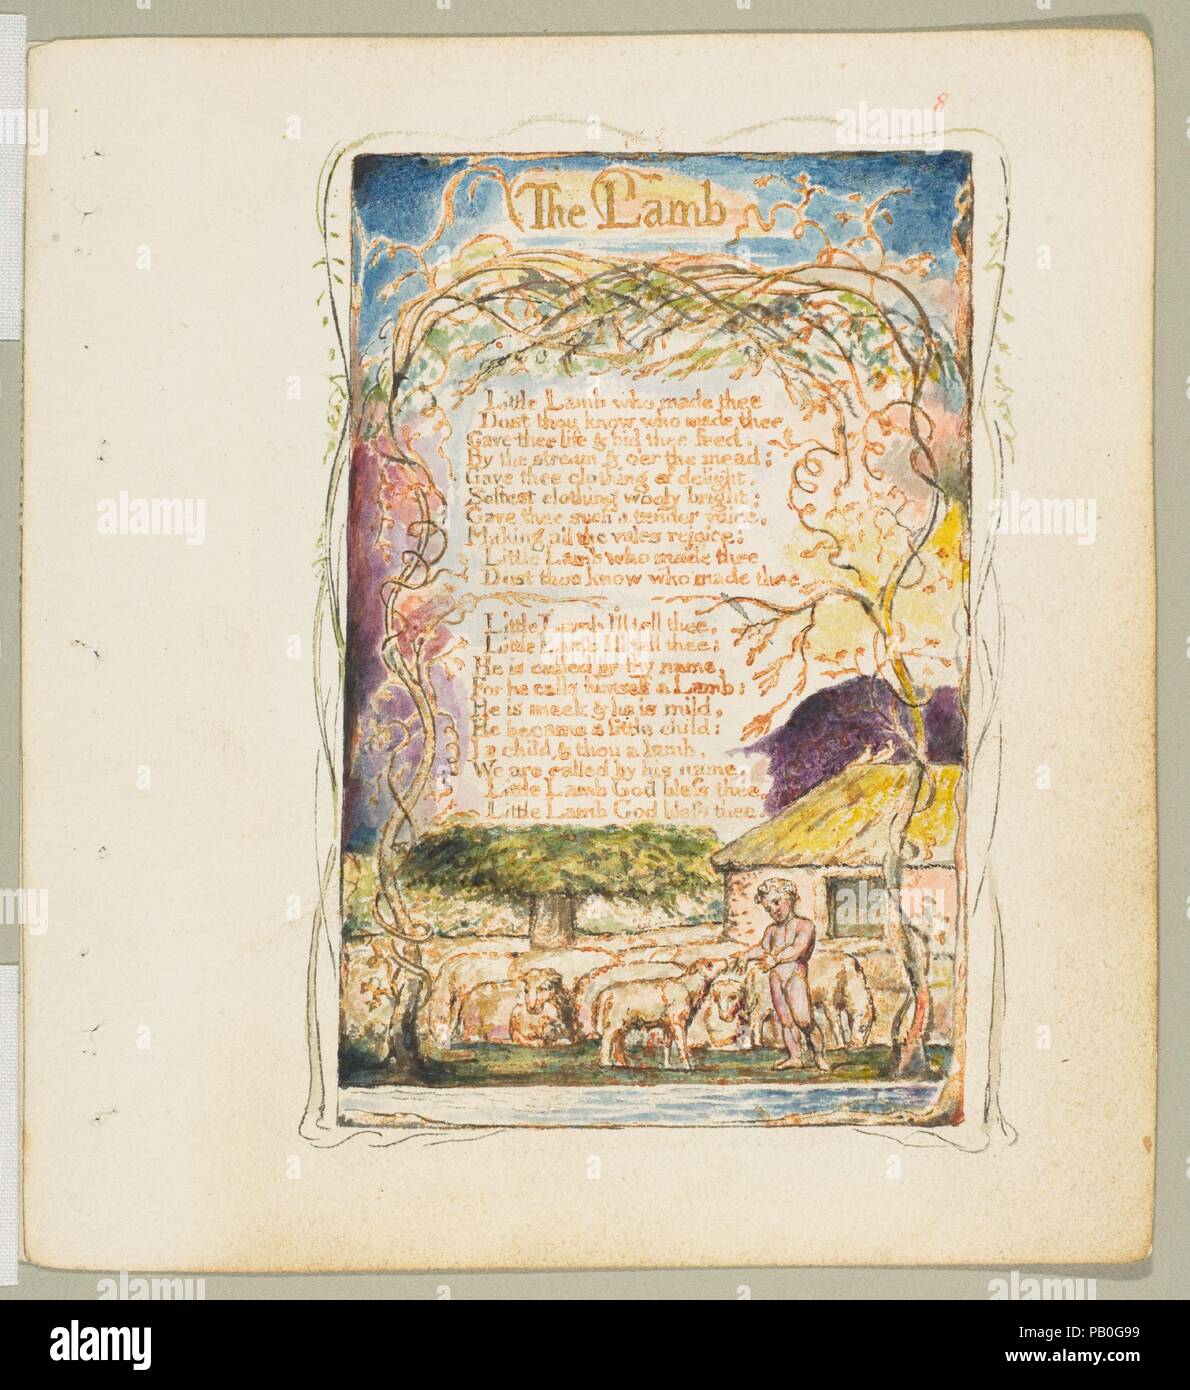 8
The Lamb
Little Lamb who made thee
Dost thou know who made thee
Gave thee life & bid thee feed.
By the stream & o'er the mead;
Gave thee clothing of delight,
Softest clothing wooly bright;
Gave thee such a tender voice,
Making all the vales rejoice;
Little Lamb who made thee
Dost thou know who made thee
Little Lamb I'll tell thee,
Little Lamb I'll tell thee;
He is called by thy name,
For he calls himself a Lamb:
He is meek & he is mild,
He became a little child:
I a child & thou a lamb,
We are called by his name,
Little Lamb God bless thee,
Little Lamb God bless thee.
alamy
Image ID: PB0G99
www.alamy.com